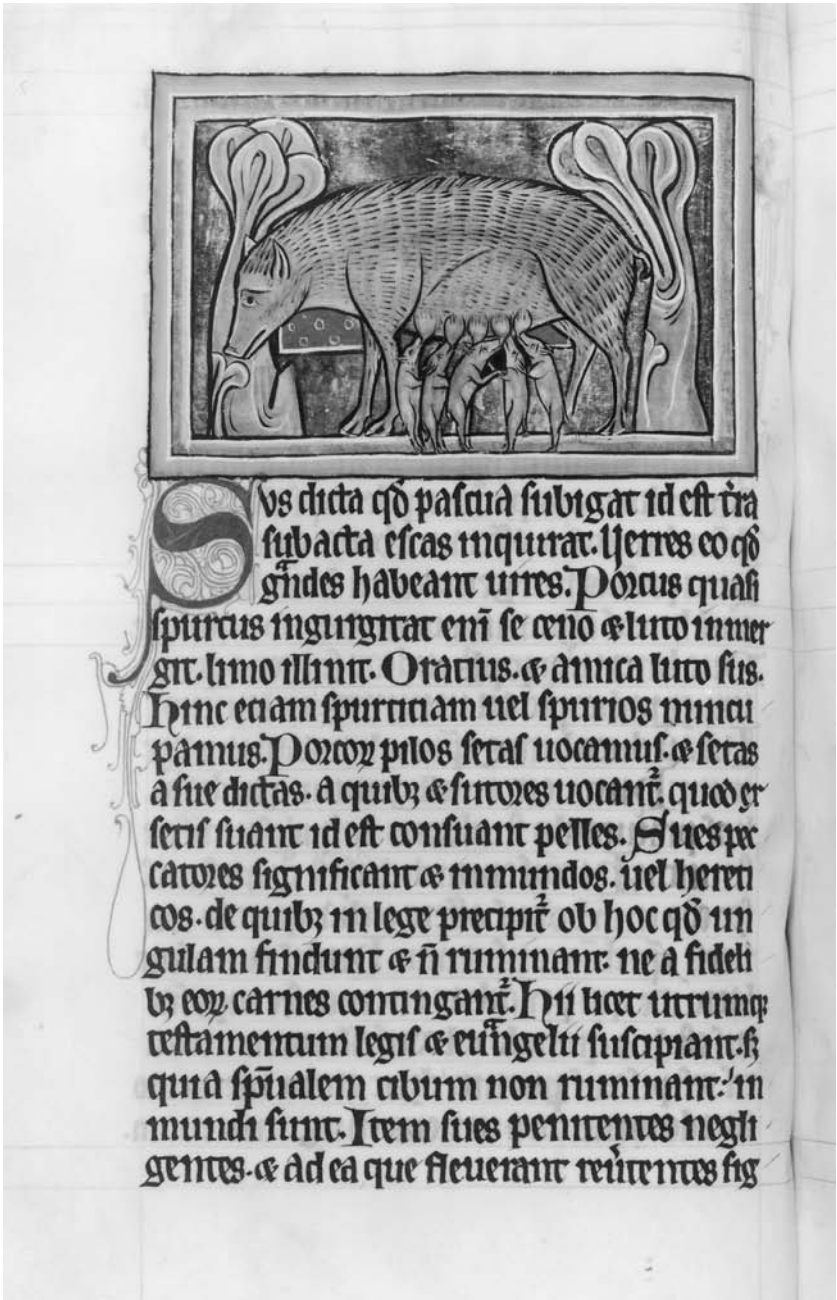 Sus dicta qđ pascua subigat id est t̾ra
subacta escas inquirat. Uerres eo qđ
gͣndes habeant uires. Porcus quasi
spurcus ingurgitat eni̅ se ceno & luto inmer
git. limo illinit. Oratius. & amica luto sus.
Hinc etiam spurticiam uel spurios nuncu
pamus. Porcoꝝ pilos setas uocamus. & setas
a sue dictas. a quibꝫ & sutores uocant᷑. quod ex
setis suant id est consuant pelles. Sues pec
catores significant & inmundos. uel hereti
cos. de quibꝫ in lege precipit᷑ ob hoc qđ un
gulam findunt & n̅ ruminant. ne a fideli
bꝫ eoꝝ carnes contingant᷑. Hii licet utrumqꝫ
testamentum legis & euͣngelii suscipiant. sꝫ
quia sp̅ualem cibum non ruminant: in
mundi sunt. Item sues penitentes negli
gentes. & ad ea que fleuerant reu̾tentes sig